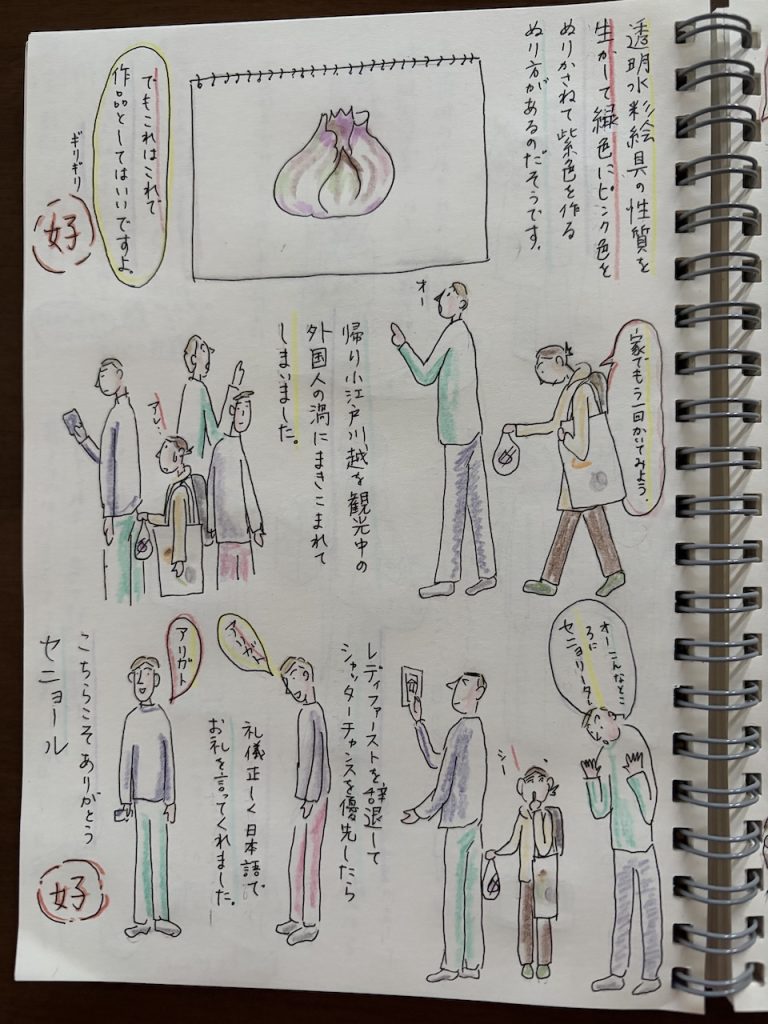 透明水彩絵具の性質を
生かして緑色にピンク色を
ぬりかさねて紫色を作る
ぬり方があるのだそうです。
でもこれはこれで
作品としてはいいですよ。
ギリギリ
好
家でもう一回かいてみよう。
オー
帰り小江戸川越を観光中の
外国人の渦にまきこまれて
しまいました。
アレ
オーこんなとこ
ろに
セニョリータ
シー
レディファーストを辞退して
シャッターチャンスを優先したら
アリガト
礼儀正しく日本語で
お礼を言ってくれました。
アリガト
こちらこそありがとう
セニョール
好